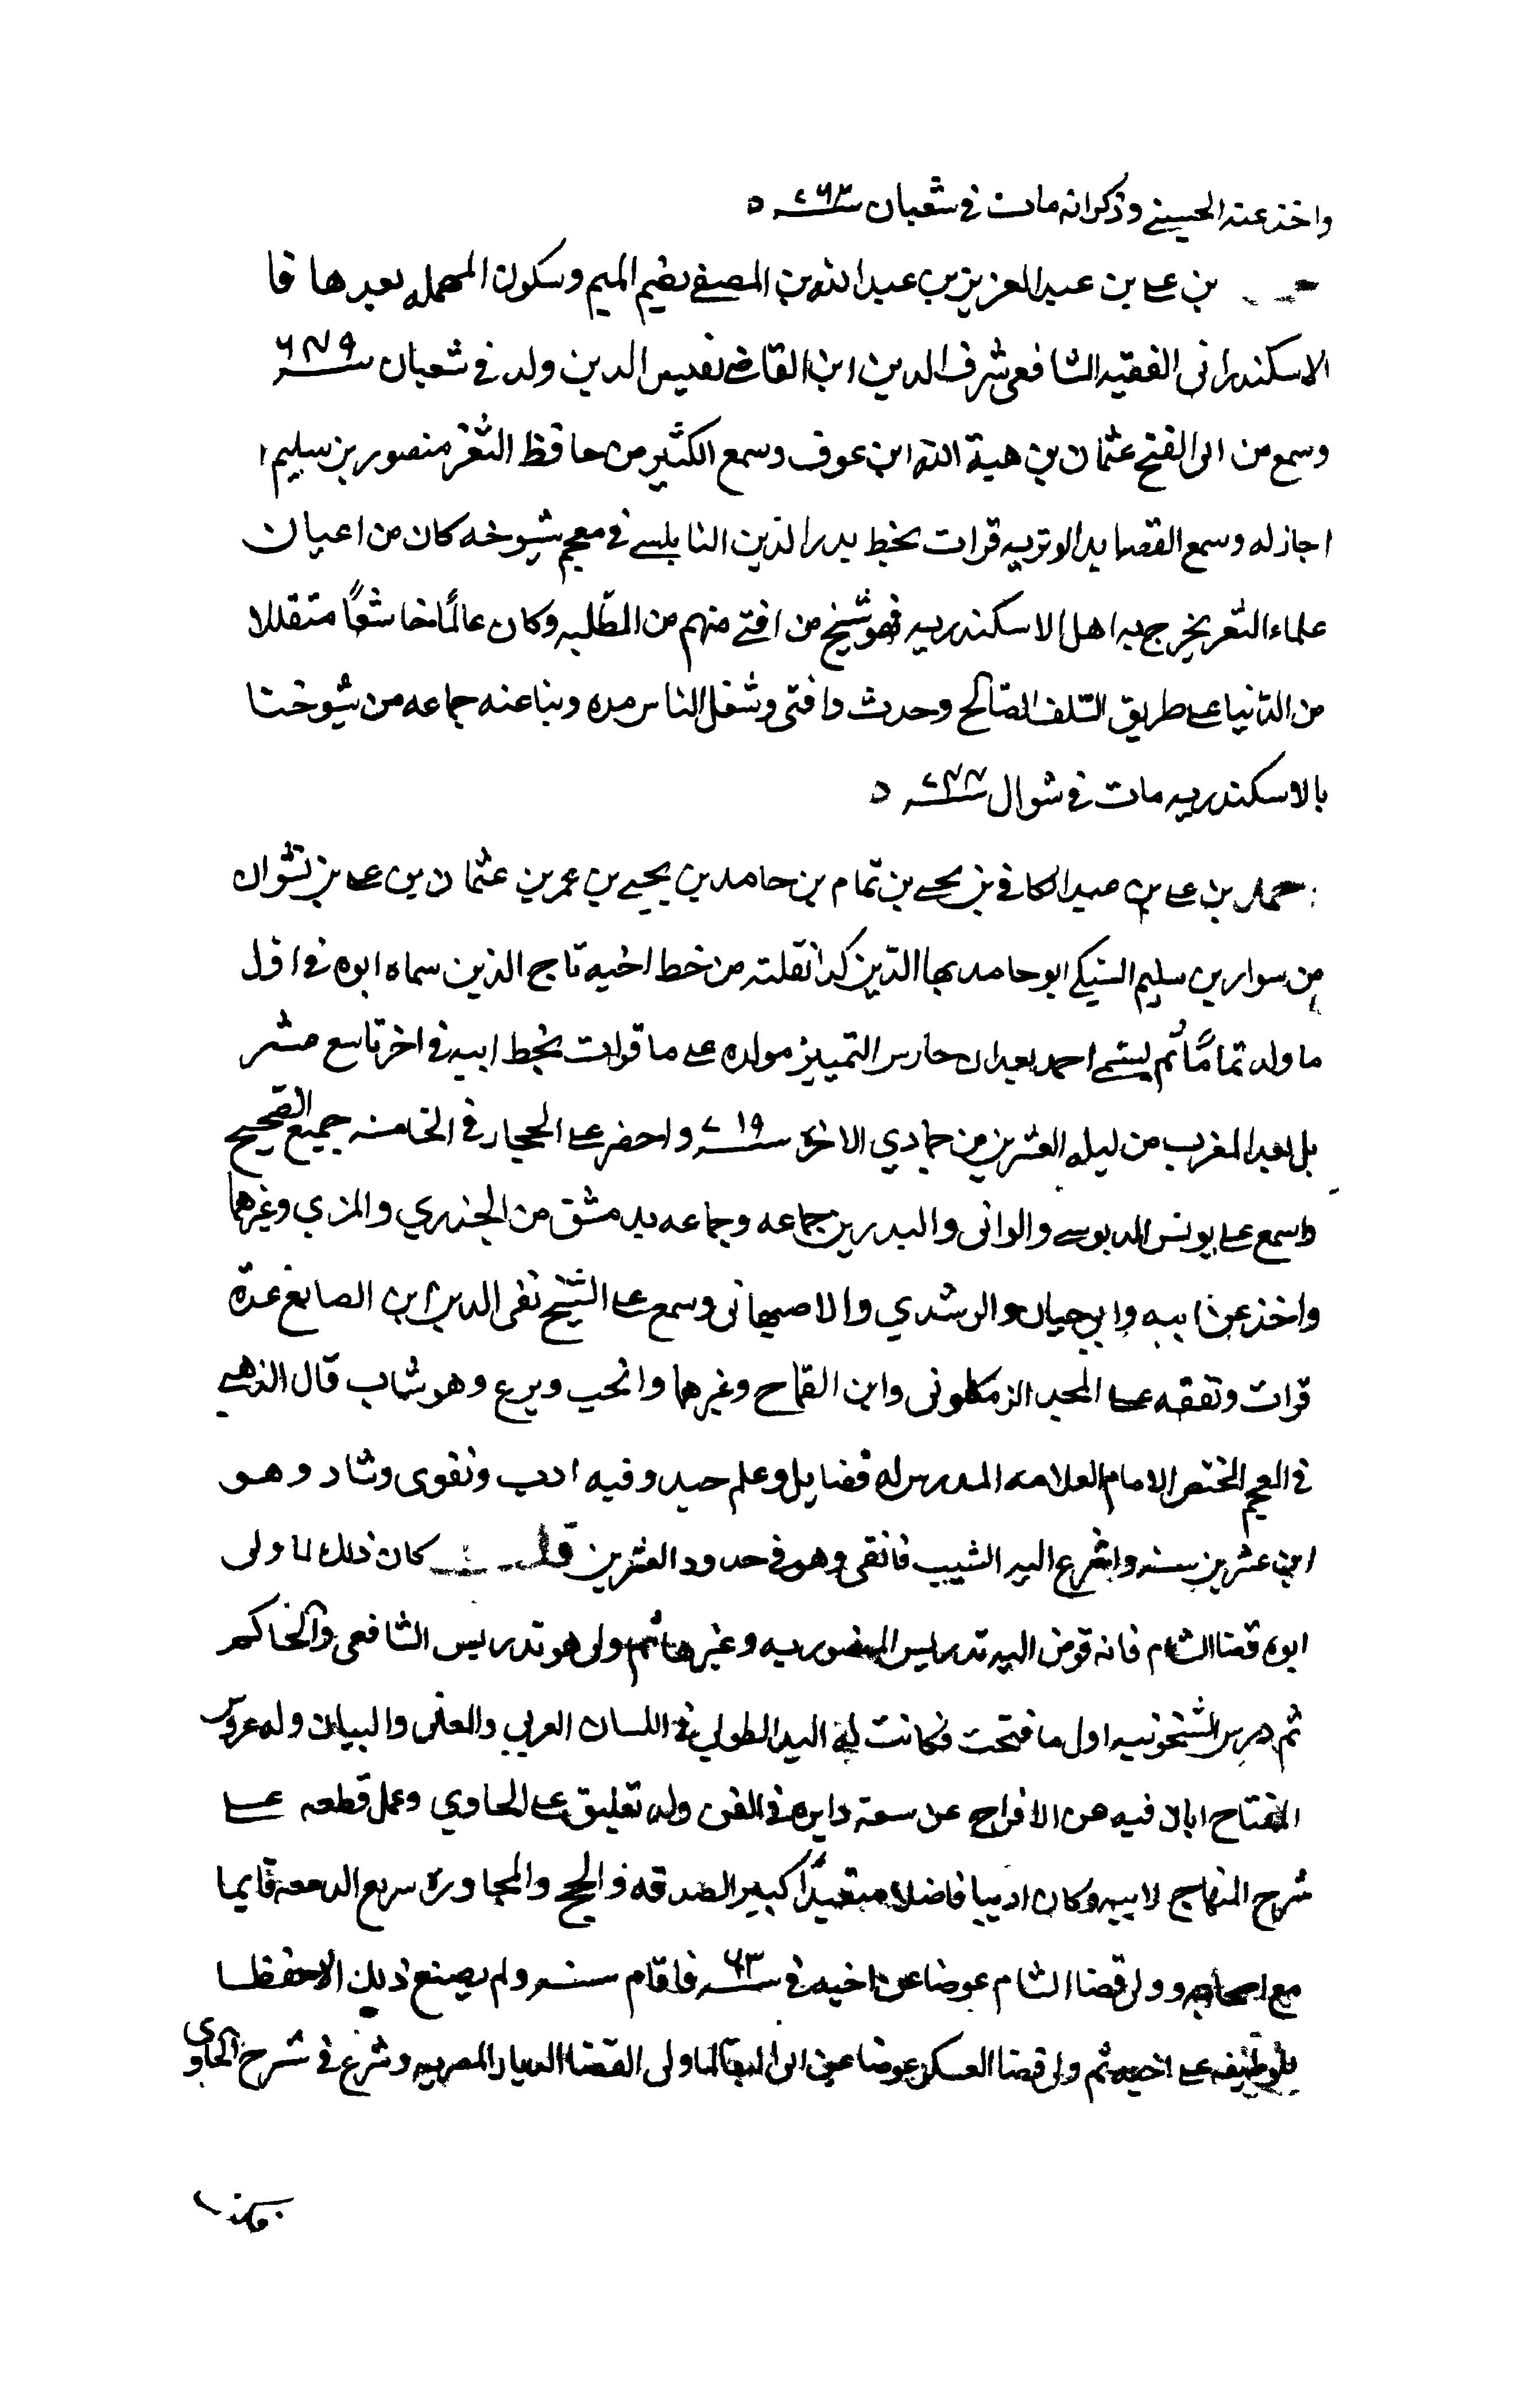 واخذ عنه الحسيني وذكر انه مات في شعبان سنة ٧٦٣ ه
بن علي بن عبد العزيز بن عبد الله بن المصفي بضم الميم وسكون المهمله بعدها فا
الاسكندراني الفقيه الشافعي شرف الدين ابن القاضي نفيس الدين ولد في شعبان سنة ٦٧٩
وسمع من ابي الفتح عثمان بن هبة الله ابن عوف وسمع الكثير من حافظ الثغر منصور بن سليم ا
اجاز له وسمع القصايد الوتريه قرات بخط بدر الدين النابلسي في معجم شيوخه كان من اعيان
علماء الثغر تخرج به اهل الاسكندريه فهو شيخ من افتى منهم من الطلبه وكان عالمًا خاشعًا متقللا
من الدنيا على طريق السلف الصالح وحدث وافتى وشغل الناس مده وثنا عنه جماعه من شيوخنا
بالاسكندريه مات في شوال سنة ه
محمد بن علي بن عبد الكافي بن يحيى بن تمام بن حامد بن يحيى بن عمر بن عثمان بن علي بن نشوان
بن سوار بن سليم السبكي ابو حامد بها الدين كذا نقلته من خط اخيه تاج الدين سماه ابوه في اول
ما ولد تمامًا ثم يسمى احمد بعد ان حارس التمييز مولده على ما قرات بخط ابيه في اخر تاسع عشر
بل بعد المغرب من ليله العشرين من جمادي الاخره سنة ٧١٩ واحضر على الحجار في الخامسه جميع الصحيح
واسمع على يونس الدبوسي والواني والبدر بن جماعه وجماعه بدمشق من الجزري والمزي وغيرهما
واخذ عن ابيه وابي حيان والرشدي والاصبهاني وسمع على الشيخ تقي الدين ابن الصايغ عدة
قرات وتفقه على المجد الزمكلوني وابن القماح وغيرهما وانجب وبرع وهو شاب قال الذهبي
في المعجم المختص الامام العلامه المدرس له فضايل وعلم جيد وفيه ادب وتقوى وساد وهو
ابن عشرين سنه واسرع اليه الشيب فانقى وهو في حدود العشرين قلت كان ذلك لما ولي
ابوه قضا الشام فانه فوض اليه تدريس المنصوريه وغيرها ثم ولي هو تدريس الشافعي والحاكم
ثم درس الشيخونيه اول ما فتحت وكانت له اليد الطولي في اللسان العربي والمعنى والبيان وله عروس
الافتتاح ابان فيه عن الافراح عن سعة دايره في الفن وله تعليق على الحاوي وعمل قطعه على
شرح المنهاج لابيه وكان اديبا فاضلا متعبدًا كبير الصدقه والحج والمجاورة سريع الدمعه قايما
مع اصحابه وولي قضا الشام عوضا عن اخيه في سنة ٦٣ فاقام سنه ولم يصنع ذلك الا حفظا
للوظيفه على اخيه ثم ولي قضا العسكر عوضا عن ابي البقا لما ولي القضا الديار المصريه وشرع في شرح الحاوي